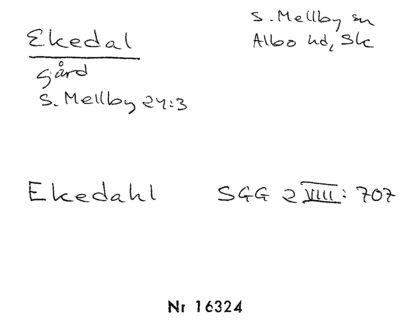 Ekedal
S. Mellby sn
Albo hd, Sk
gård
S. Mellby 24:3
Ekedahl SGG 2 VIII: 707
Nr 16324